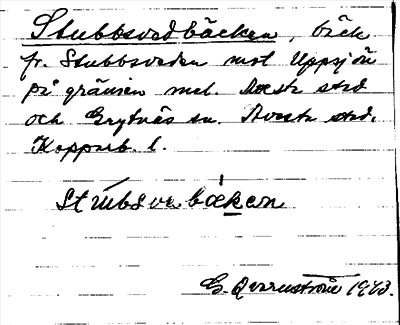 Stubbsvedbäcken, bäck
fr. Stubbsveden mot Uppsjön
på gränsen mel. Avesta stad
och Grytnäs sn. Avesta stad.
Kopparb. l.
stubsvebäken
G. Qvarnström 1973.